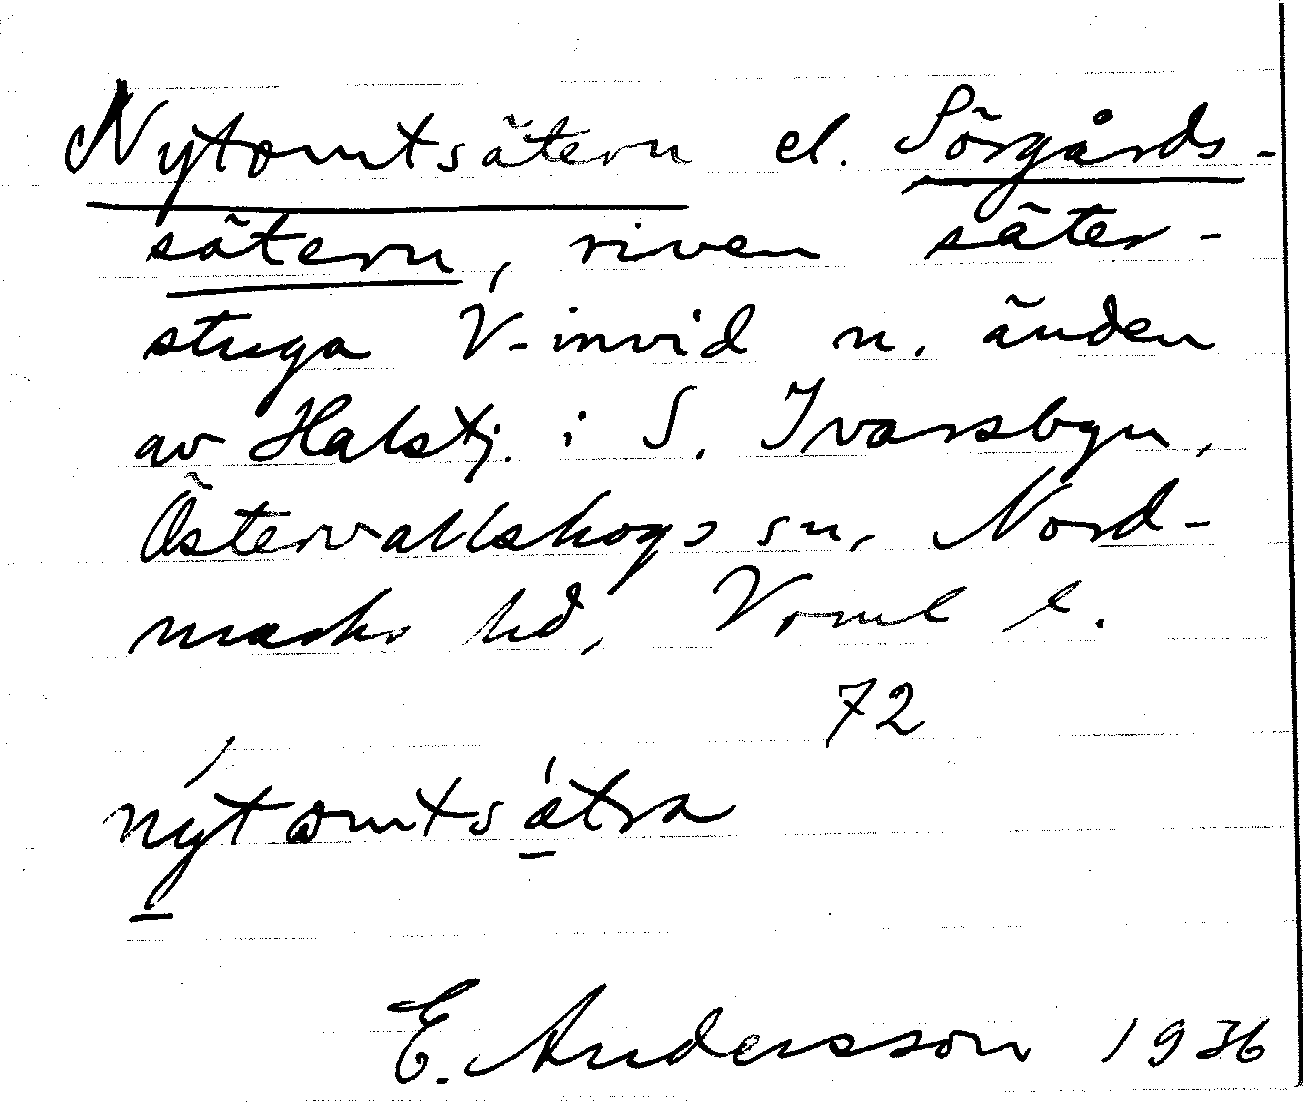 Nytomtsätern el. Sörgårds-
sätern, riven säter-
stuga V-invid n. änden
av Halstj. i S. Ivarsbyn,
Östervallskogs sn, Nord-
marks hd, Vrml l.
72
nýtomtsátra
E. Andersson 1936